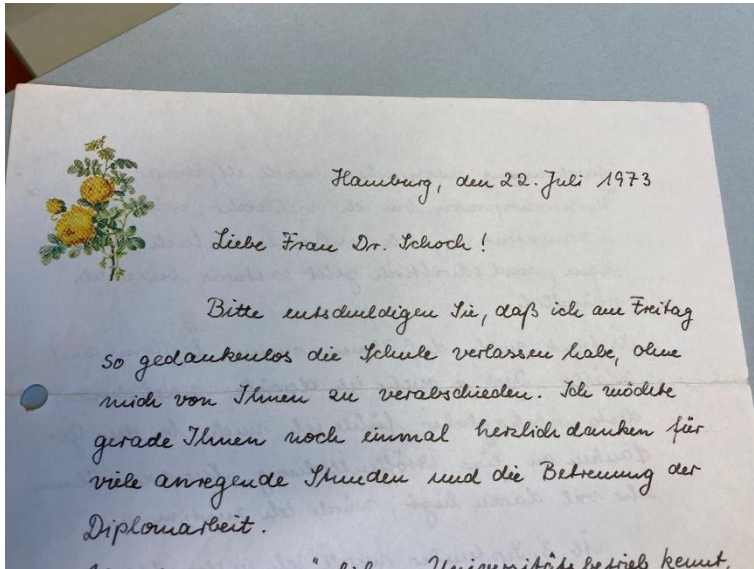 Hamburg, den 22. Juli 1973
Liebe Frau Dr. Schoch!
Bitte entschuldigen Sie, daß ich am Freitag
so gedankenlos die Schule verlassen habe, ohne
mich von Ihnen zu verabschieden. Ich möchte
gerade Ihnen noch einmal herzlich danken für
viele anregende Stunden und die Betreuung der
Diplomarbeit.
Universitätsbetrieb kennt,